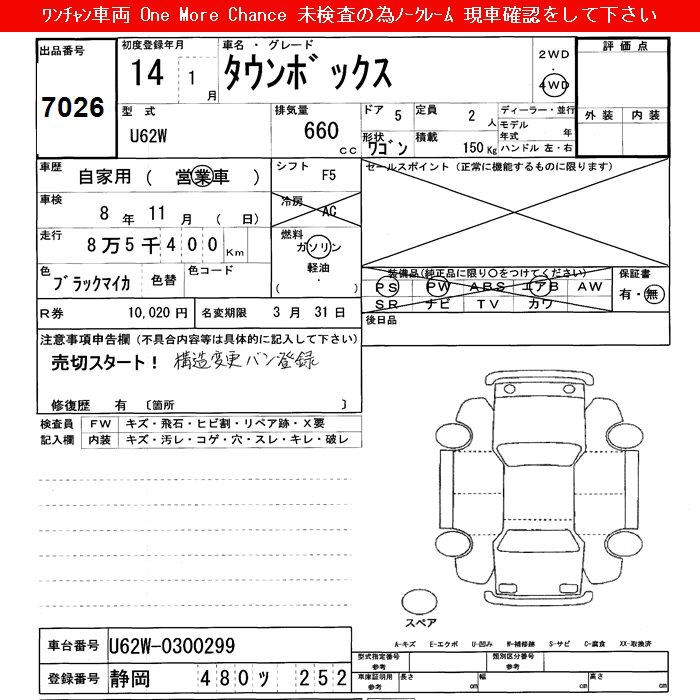 ﾜﾝﾁｬﾝ車両 One More Chance 未検査の為ﾉｰｸﾚｰﾑ 現車確認をして下さい
出品番号
7026
初度登録年月
14 1 月
車名・グレード
タウンボックス
2WD
・
4WD
評価点
外装 内装
型式
U62W
排気量
660 cc
ドア 5
定員 2 人
形状 ワゴン
積載 150 Kg
ディーラー・並行
モデル年式 年
ハンドル 左・右
車歴
自家用 ( 営業車 )
シフト F5
車検
8 年 11 月 ( 日)
冷房 AC
走行
8 万 5 千 4 0 0 Km
燃料
ガソリン
軽油
・
( )
色
ブラックマイカ
色替
色コード
R券 10,020 円
名変期限 3 月 31 日
セールスポイント (正常に機能するものに限ります)
装備品(純正品に限り○をつけてください)
PS PW ABS エアB AW
SR ナビ TV カワ
保証書
有・無
後日品
注意事項申告欄 (不具合内容等は具体的に記入して下さい)
売切スタート! 構造変更バン登録
修復歴 有 〔箇所 〕
検査員記入欄
FW キズ・飛石・ヒビ割・リペア跡・X要
内装 キズ・汚レ・コゲ・穴・スレ・キレ・破レ
スペア
車台番号 U62W-0300299
登録番号 静岡 480 ッ 252
A-キズ E-エクボ U-凹み W-補修跡 S-サビ C-腐食 XX-取換済
型式指定番号 参考
類別区分番号 参考
車庫証明用 参考
長さ cm
幅 cm
高さ cm